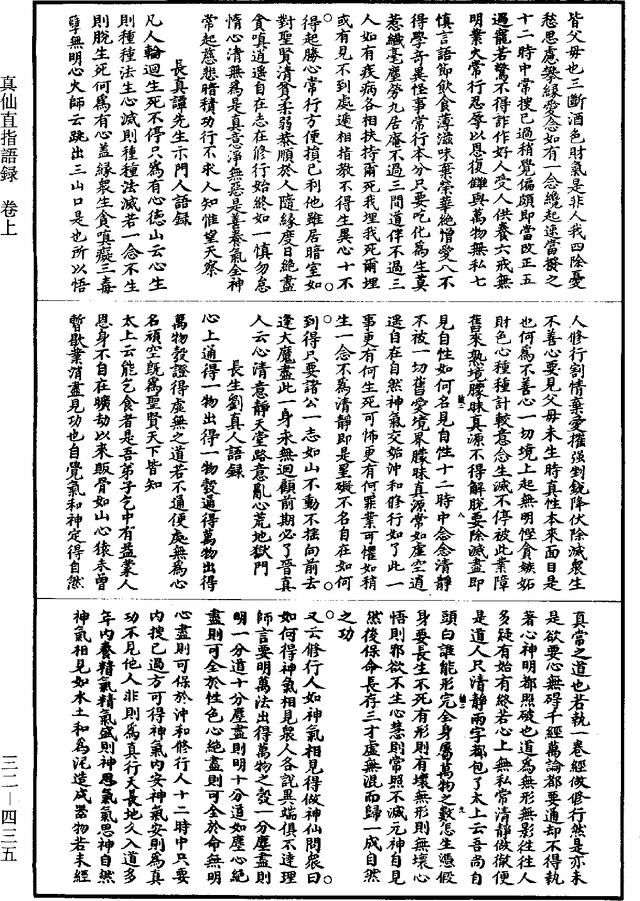 皆父母也三斷酒色財氣是非人我四除憂
愁思慮攀緣愛念如有一念纔起速當撥之
十二時中常搜己過稍覺偏頗即當改正五
遇寵若驚不得詐作好人受人供養六戒無
明業火常行忍辱以恩復讎與萬物無私七
慎言語節飲食薄滋味棄榮華絕憎愛八不
得學奇異怪事常行本分只要吃化為生莫
惹纖毫塵勞九居庵不過三間道伴不過三
人如有疾病各相扶持爾死我埋我死爾埋
或有見不到處遞相指教不得生異心十不
得起勝心常行方便損己利他雖居暗室如
對聖賢清貧柔弱恭順於人隨緣度日絕盡
貪嗔逍遙自在志在修行始終如一慎勿怠
惰心清無為是真意淨無惡是善養氣全神
常起慈悲暗積功行不求人知惟望天察
長真譚先生示門人語錄
凡人輪迴生死不停只為有心德山云心生
則種種法生心滅則種種法滅若一念不生
則脫生死何為有心蓋緣眾生貪嗔癡三毒
孽無明心火師云跳出三山口是也所以悟
人修行割情棄愛摧強剉銳降伏除滅眾生
不善心要見父母未生時真性本來面目是
也何為不善心一切境上起無明慳貪嫉妬
財色心種種計較意念生滅不停被此業障
舊來熟境朦昧真源不得解脫要除滅盡即
見自性如何名見自性十二時中念念清靜
不被一切舊愛境界朦昧真源常如虛空逍
遙自在自然神氣交姤沖和修行如了此一
事更有何生死可怖更有何罪業可懼如稍
生一念不為清靜即是罣礙不名自在如何
到得只要諸公一志如山不動不搖向前去
逢大魔盡此一身永無迴顧前期必了昔真
人云心清意靜天堂路意亂心荒地獄門
長生劉真人語錄
心上通得一物出得一物殼通得萬物出得
萬物殼證得虛無之道若不通便處無為心
名頑空既為聖賢天下皆知
太上云能乞食者是吾弟子乞中有益業人
恩身不自在曠劫以來販骨如山心猿未曾
暫歇業消盡見功也自覺氣和神定得自然
真常之道也若執一卷經做修行然是亦未
是欲要心無碍千經萬論都要通却不得執
著心神明都照破也道為無形無影往往人
多疑有始有終若心上無私常清靜做徹便
是道人尺清靜兩字都包了太上云吾尚自
頭白誰能形完全身屬萬物之數怎生憑假
身要長生不死有形則有壞無形則無壞心
悟則邪欲不生心慧則常照不滅元神自見
然後保命長存三才虛無混而歸一成自然
之功
又云修行人如神氣相見得做神仙問眾曰
如何得神氣相見眾人各說異端俱不達理
師言要明萬法出得萬物之殼一分塵盡則
明一分道十分塵盡則明十分道如塵心絕
盡則可全於性色心絕盡則可全於命無明
心盡則可保於沖和修行人十二時中只要
內搜己過方可得神氣內安神氣安則為真
功不見他人非則為真行天長地久入道多
年內養精氣精氣盛則神思氣氣思神自然
神氣相見如水土和為泥造成器物若未經
真仙直指語錄 卷上
三二—四三五